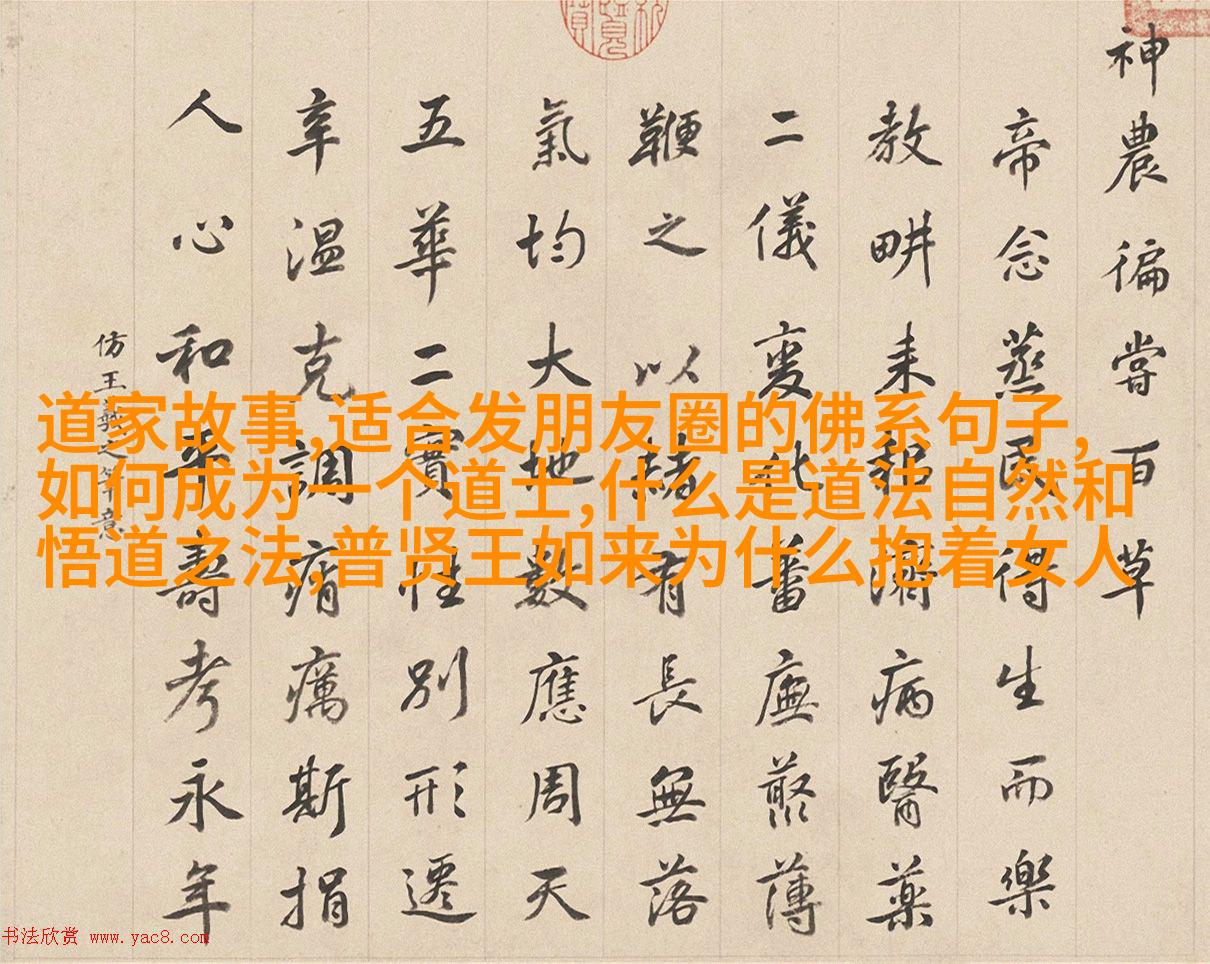 道家故事,适合发朋友圈的佛系句子,
如何成为一个道士,什么是道法自然和
悟道之法,普贤王如来为什么抱着女人
神農徧嘗百草
帝念蒸民得生而樂
教畊耒耜病醫藥
二儀變化蕃廡藂薄
鞭之以赭有長無落
氣均大地數應周天
五華二實性別形遷
辛温克調痟癘斯捐
人心和平壽考永年
仿王羲之筆意
书法欣赏 www.yac8.com